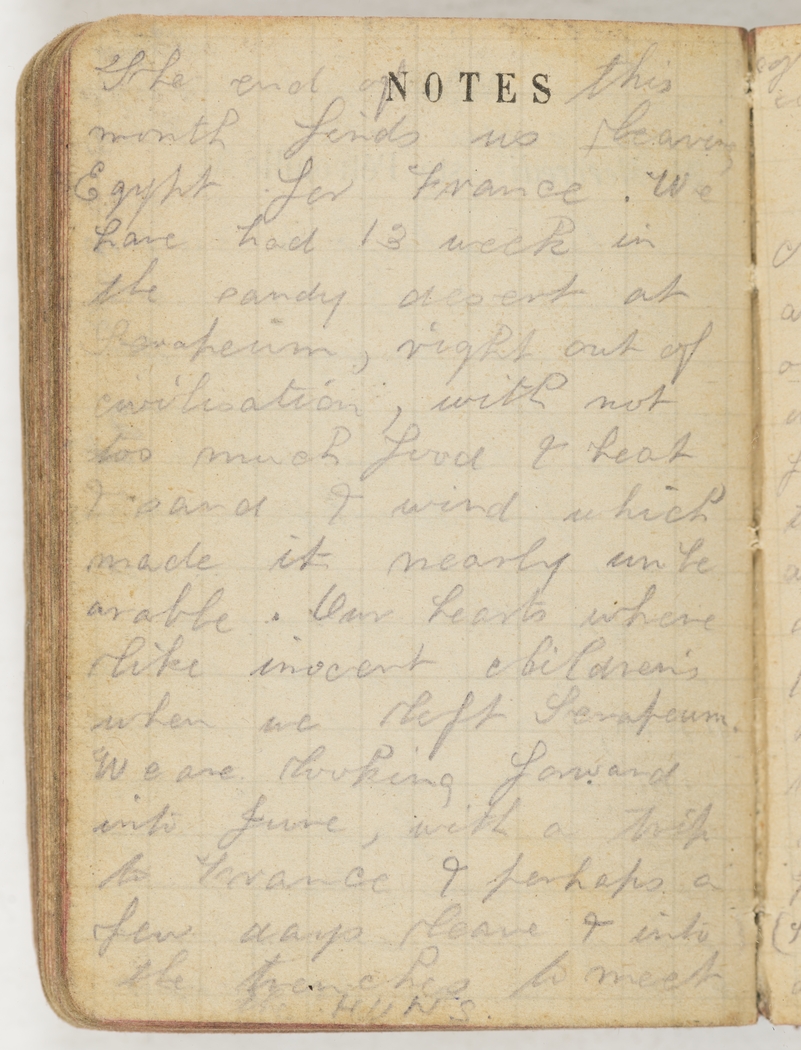 NOTES
The end of this
month finds us leaving
Egypt for France. We
have had 13 week in
the sandy desert at
Serapeum, right out of
civilisation, with not
too much food & heat
& sand & wind which
made it nearly unbe
arable. Our hearts where
like inocent children's
when we left Serapeum.
We are looking forward
into June, with a trip
to France & perhaps a
few days leave & into
the trenches to meet
HUNS.